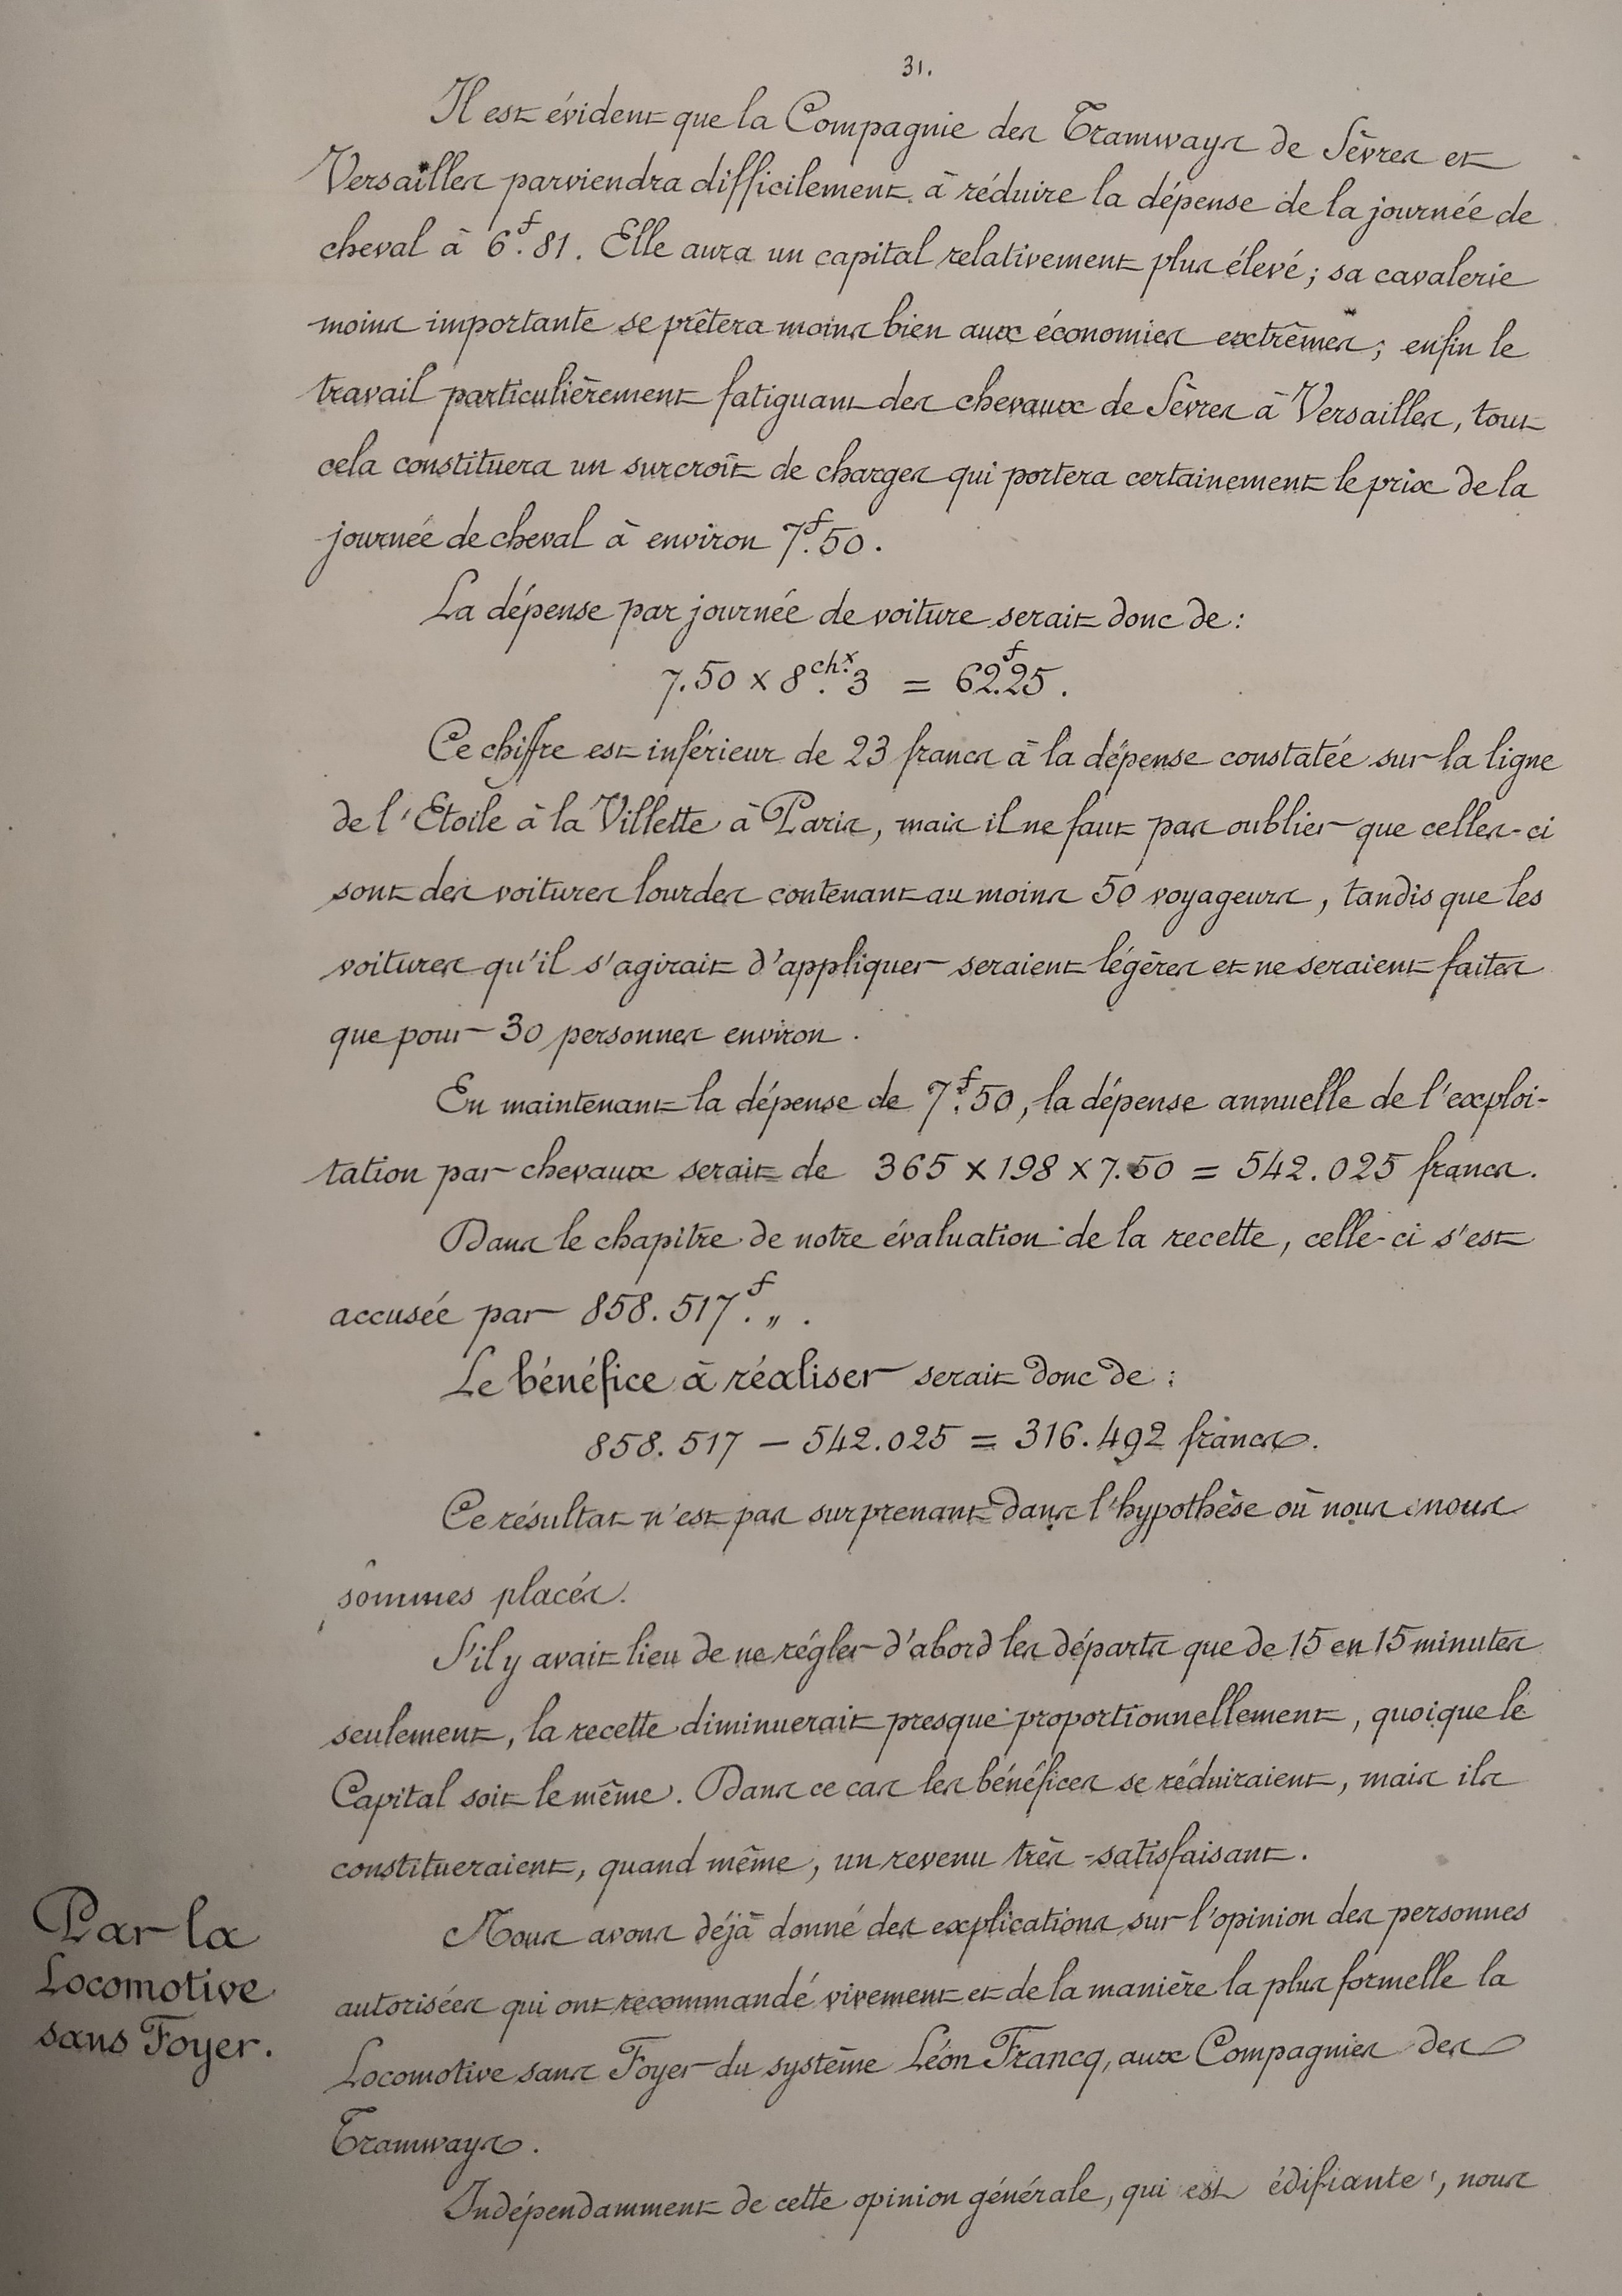 31.
Il est évident que la Compagnie des Tramways de Sèvres et
Versailles parviendra difficilement à réduire la dépense de la journée de
cheval à 6f.81. Elle aura un capital relativement plus élevé; sa cavalerie
moins importante se prêtera moins bien aux économies extrêmes; enfin le
travail particulièrement fatiguant des chevaux de Sèvres à Versailles, tout
cela constituera un surcroît de charges qui portera certainement le prix de la
journée de cheval à environ 7f.50.
La dépense par journée de voiture serait donc de:
7.50 x 8chx.3 = 62f.25.
Ce chiffre est inférieur de 23 francs à la dépense constatée sur la ligne
de l'Etoile à la Villette à Paris, mais il ne faut pas oublier que celles-ci
sont des voitures lourdes contenant au moins 50 voyageurs, tandis que les
voitures qu'il s'agirait d'appliquer seraient légères et ne seraient faites
que pour 30 personnes environ.
En maintenant la dépense de 7f.50, la dépense annuelle de l'exploi-
tation par chevaux serait de 365 x 198 x 7.50 = 542.025 francs.
Dans le chapitre de notre évaluation de la recette, celle-ci s'est
accusée par 858.517f.„.
Le bénéfice à réaliser serait donc de:
858.517 — 542.025 = 316.492 francs.
Ce résultat n'est pas surprenant dans l'hypothèse où nous nous
sommes placés.
S'il y avait lieu de ne régler d'abord les départs que de 15 en 15 minutes
seulement, la recette diminuerait presque proportionnellement, quoique le
Capital soit le même. Dans ce cas les bénéfices se réduiraient, mais ils
constitueraient, quand même, un revenu très-satisfaisant.
Par la
Locomotive
sans Foyer.
Nous avons déjà donné des explications sur l'opinion des personnes
autorisées qui ont recommandé vivement et de la manière la plus formelle la
Locomotive sans Foyer du système Léon Francq, aux Compagnies des
Tramways.
Indépendamment de cette opinion générale, qui est édifiante, nous